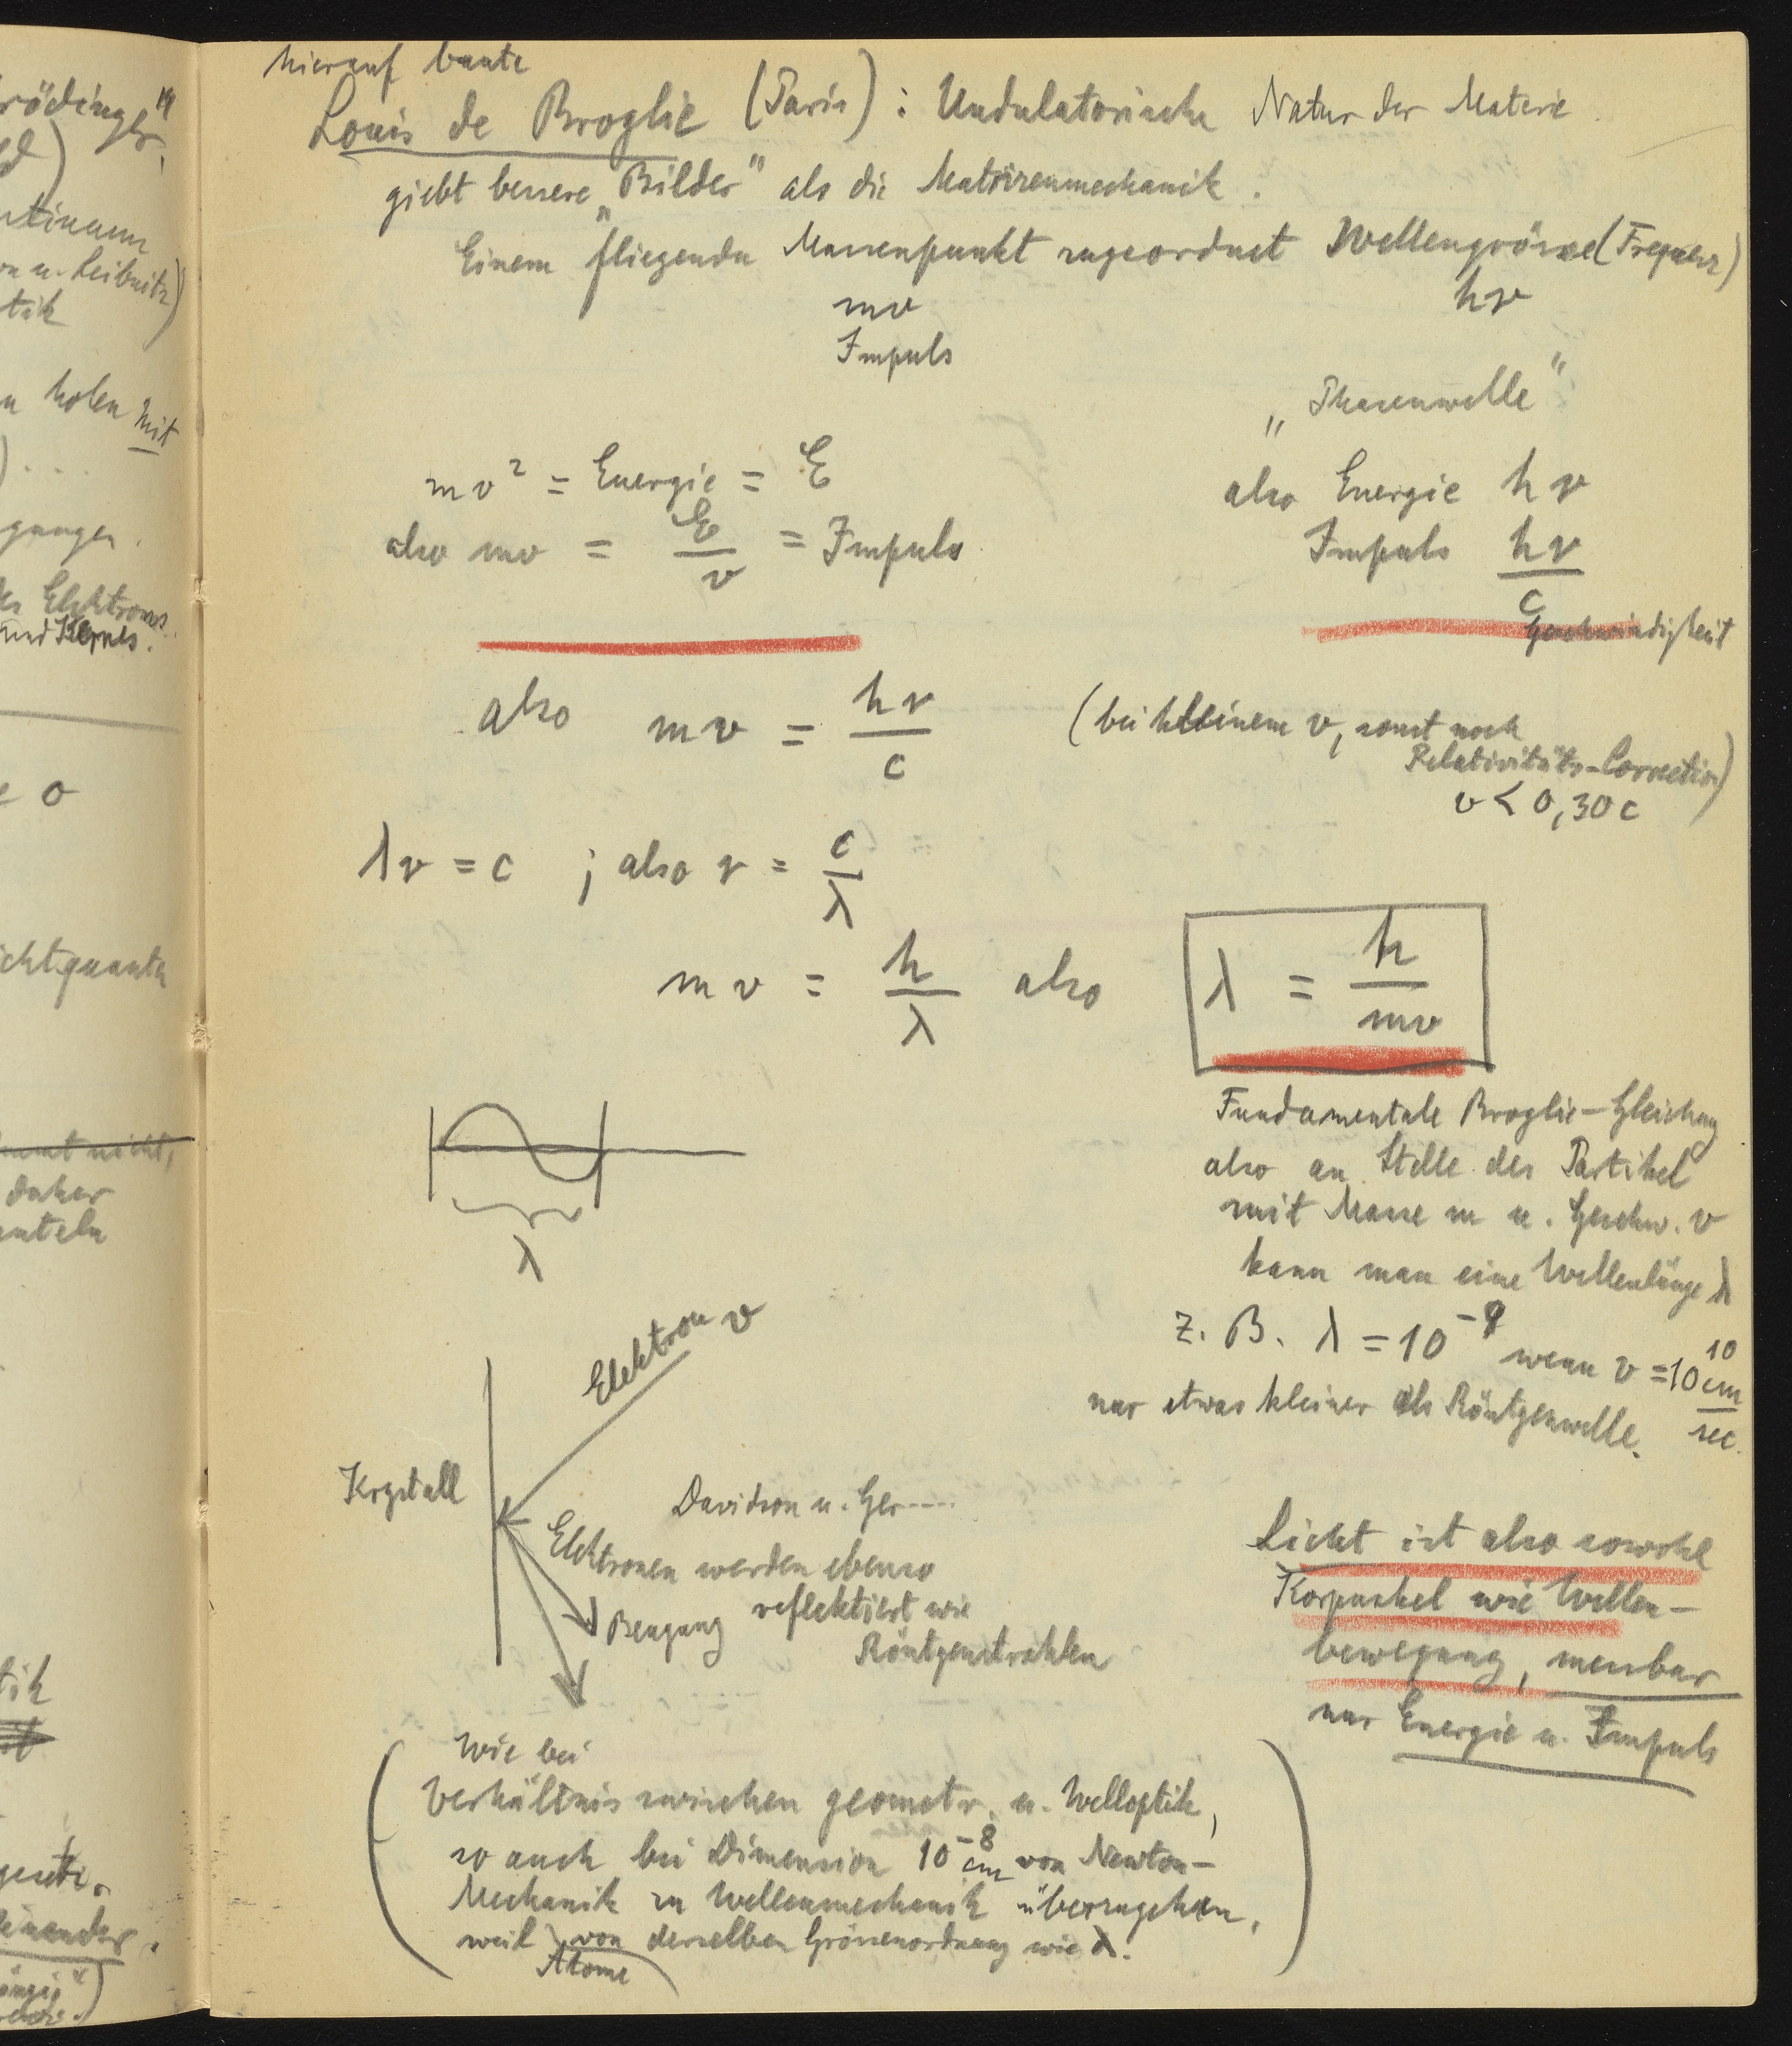 hierauf baute
Louis de Broglie (Paris): Undulatorische Natur der Materie.
giebt bessere „Bilder" als die Matrizenmechanik.
Einem fliegenden Massenpunkt zugeordnet Wellengrösse (Frequenz)
mv hν
Impuls
„Phasenwelle"
mv² = Energie = E also Energie hν
also mv = E/v = Impuls Impuls hν/c
Geschwindigkeit
also mv = hν/c (bei kleinem v, sonst noch
Relativitäts-Correction)
v < 0,30 c
λν = c ; also ν = c/λ
mv = h/λ also λ = h/mv
Fundamentale Broglie-Gleichung
also an Stelle des Partikel
mit Masse m u. Geschw. v
kann man eine Wellenlänge λ
z. B. λ = 10⁻⁹ wenn v = 10¹⁰ cm/sec.
nur etwas kleiner als Röntgenwelle.
λ
Elektron v
Krystall
Davidson u. Ger....
Elektronen werden ebenso
Beugung reflektiert wie
Röntgenstrahlen
Licht ist also sowohl
Korpuskel wie Wellen-
bewegung, messbar
nur Energie u. Impuls
(Wie bei
Verhältnis zwischen geometr. u. Welloptik,
so auch bei Dimension 10⁻⁸ cm von Newton-
Mechanik zu Wellenmechanik überzugehen,
weil von derselben Grössenordnung wie λ.)
Atome
rödinger"
ntinuum
u. Leibnitz)
tik
holen mit
) ....
gungen.
des Elektrons
und Kernes.
0
ichtquanta
nicht,
daher
tik